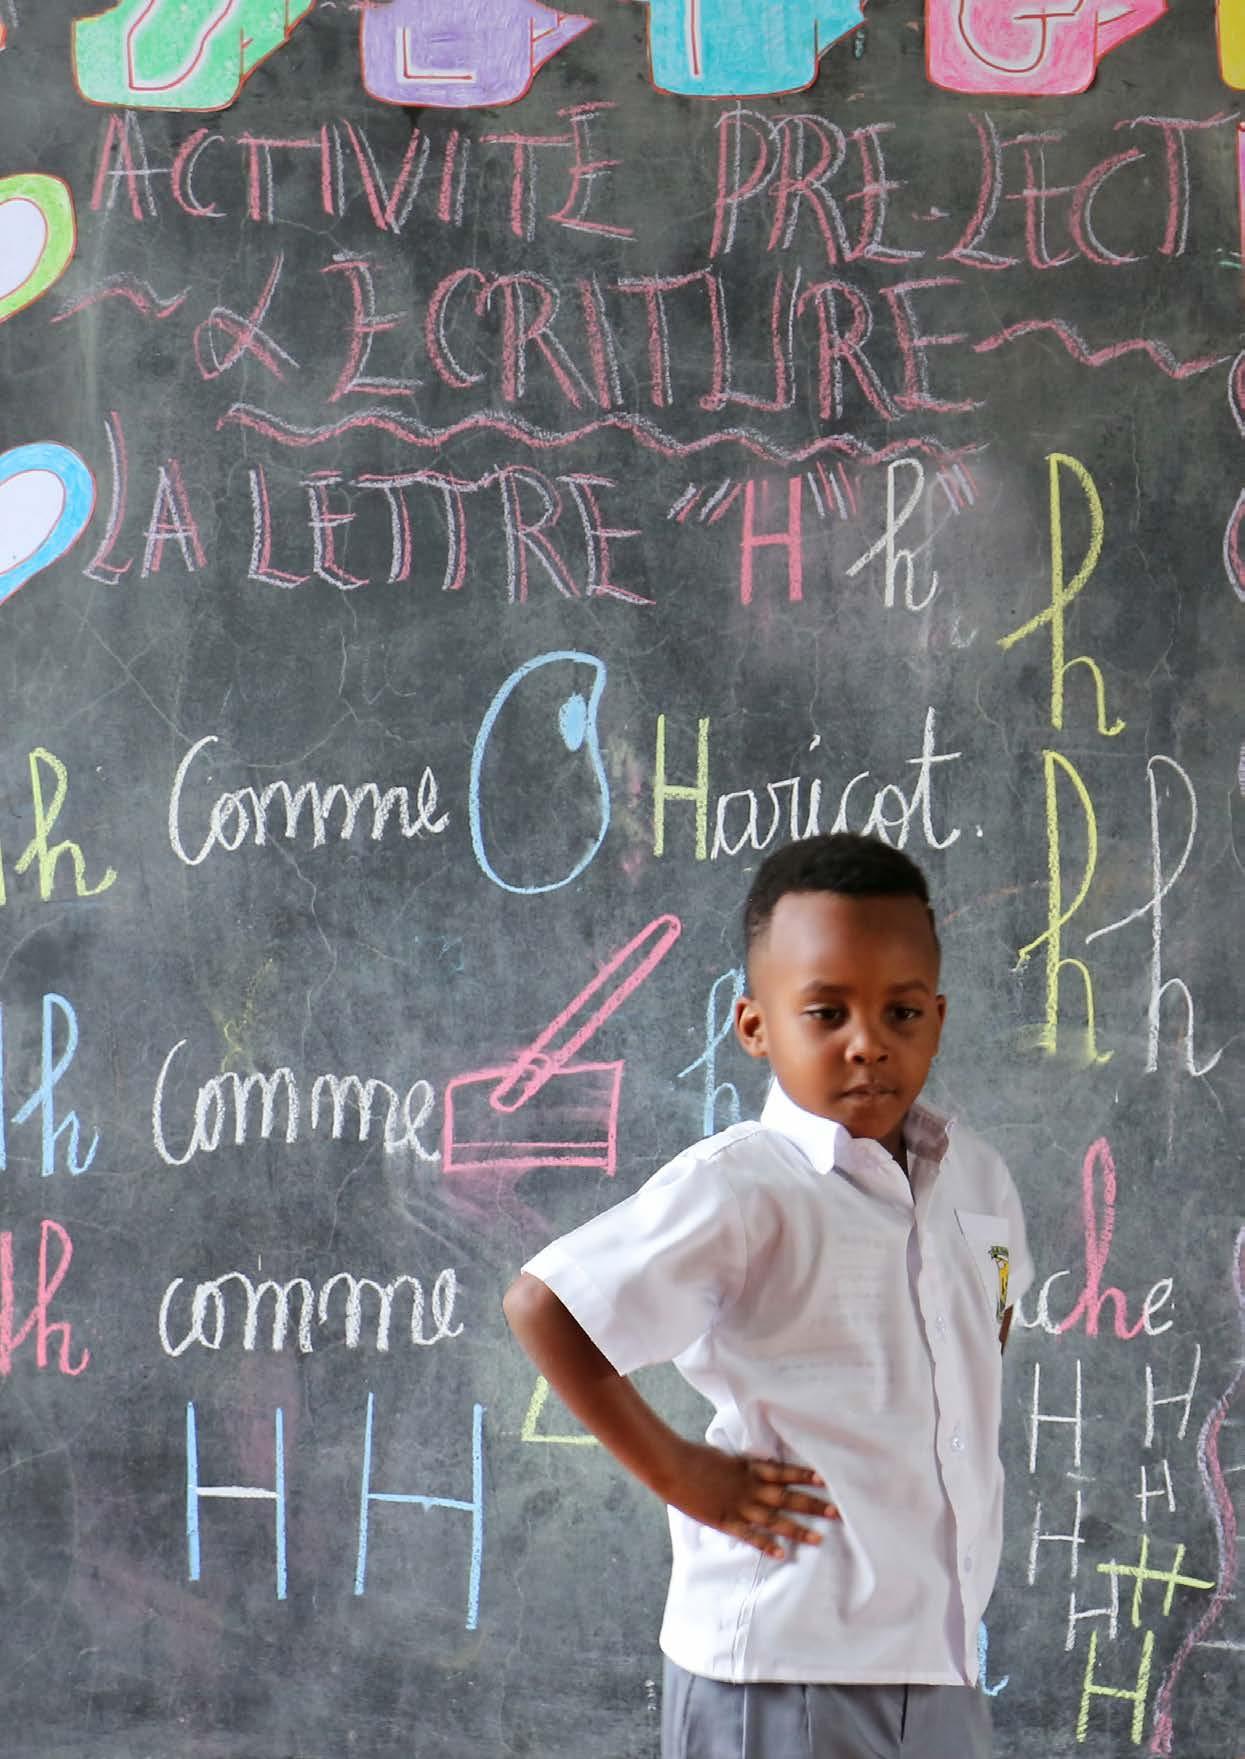 L I G
ACTIVITÉ PRE-LECT
~ & ECRITURE ~
LA LETTRE "H" "h" h
h Comme Haricot. h h
h Comme h
h comme uche
H H H H
H H
H H
H